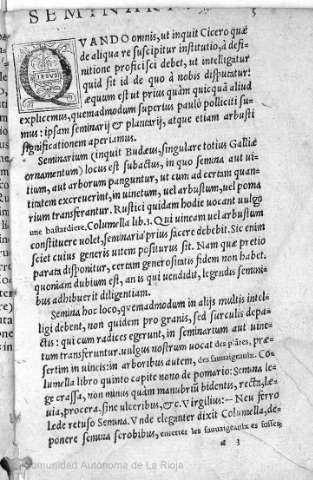 SEMINARIVM 5
QVANDO omnis, ut inquit Cicero quæ
de aliqua re suscipitur institutio, à defi-
nitione proficisci debet, ut intelligatur
quid sit id de quo à nobis disputatur:
æquum est ut prius quàm quicquã aliud
explicemus, quemadmodum superius paulò polliciti su-
mus: ipsam seminarij & plantarij, atque etiam arbusti
significationem aperiamus.
Seminarium (inquit Budæus, singulare totius Galliæ
ornamentum) locus est subactus, in quo semina aut ui-
tium, aut arborum panguntur, ut cum ad certam quan-
titatem excreuerint, in uinetum, uel arbustum, uel poma
rium transferantur. Rustici quidam hodie uocant uulgò
une bastardiere. Columella lib.1. Qui uineam uel arbustum
constituere uolet, seminaria prius facere debebit. Sic enim
sciet cuius generis uitem positurus sit. Nam quæ pretio
parata disponitur, certam generositatis fidem non habet.
quoniam dubium est, an is qui uendidit, legendis semini-
bus adhibuerit diligentiam.
Semina hoc loco, quemadmodum in alijs multis intel-
ligi debent, non quidem pro granis, sed surculis depa-
ctis: qui cum radices egerunt, in seminarium aut uine-
tum transferuntur. uulgus nostrum uocat des plātes, præ-
sertim in uineis: in arboribus autem, des sauuaigeaulx. Co-
lumella libro quinto capite nono de pomario: Semina le-
ge crassa, non minus quàm manubriũ bidentis, recta, le-
uia, procera, sine ulceribus, &c. Virgilius: — Neu ferro
Lede retuso Semina. Vnde eleganter dixit Columella, de-
ponere semina scrobibus, enterrer les sauuaigeaulx es fosses
a 3
Comunidad Autónoma de La Rioja